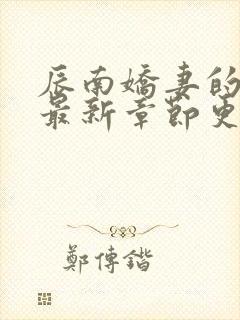 辰南嬌妻的
最新章節更
鄭傳鍇